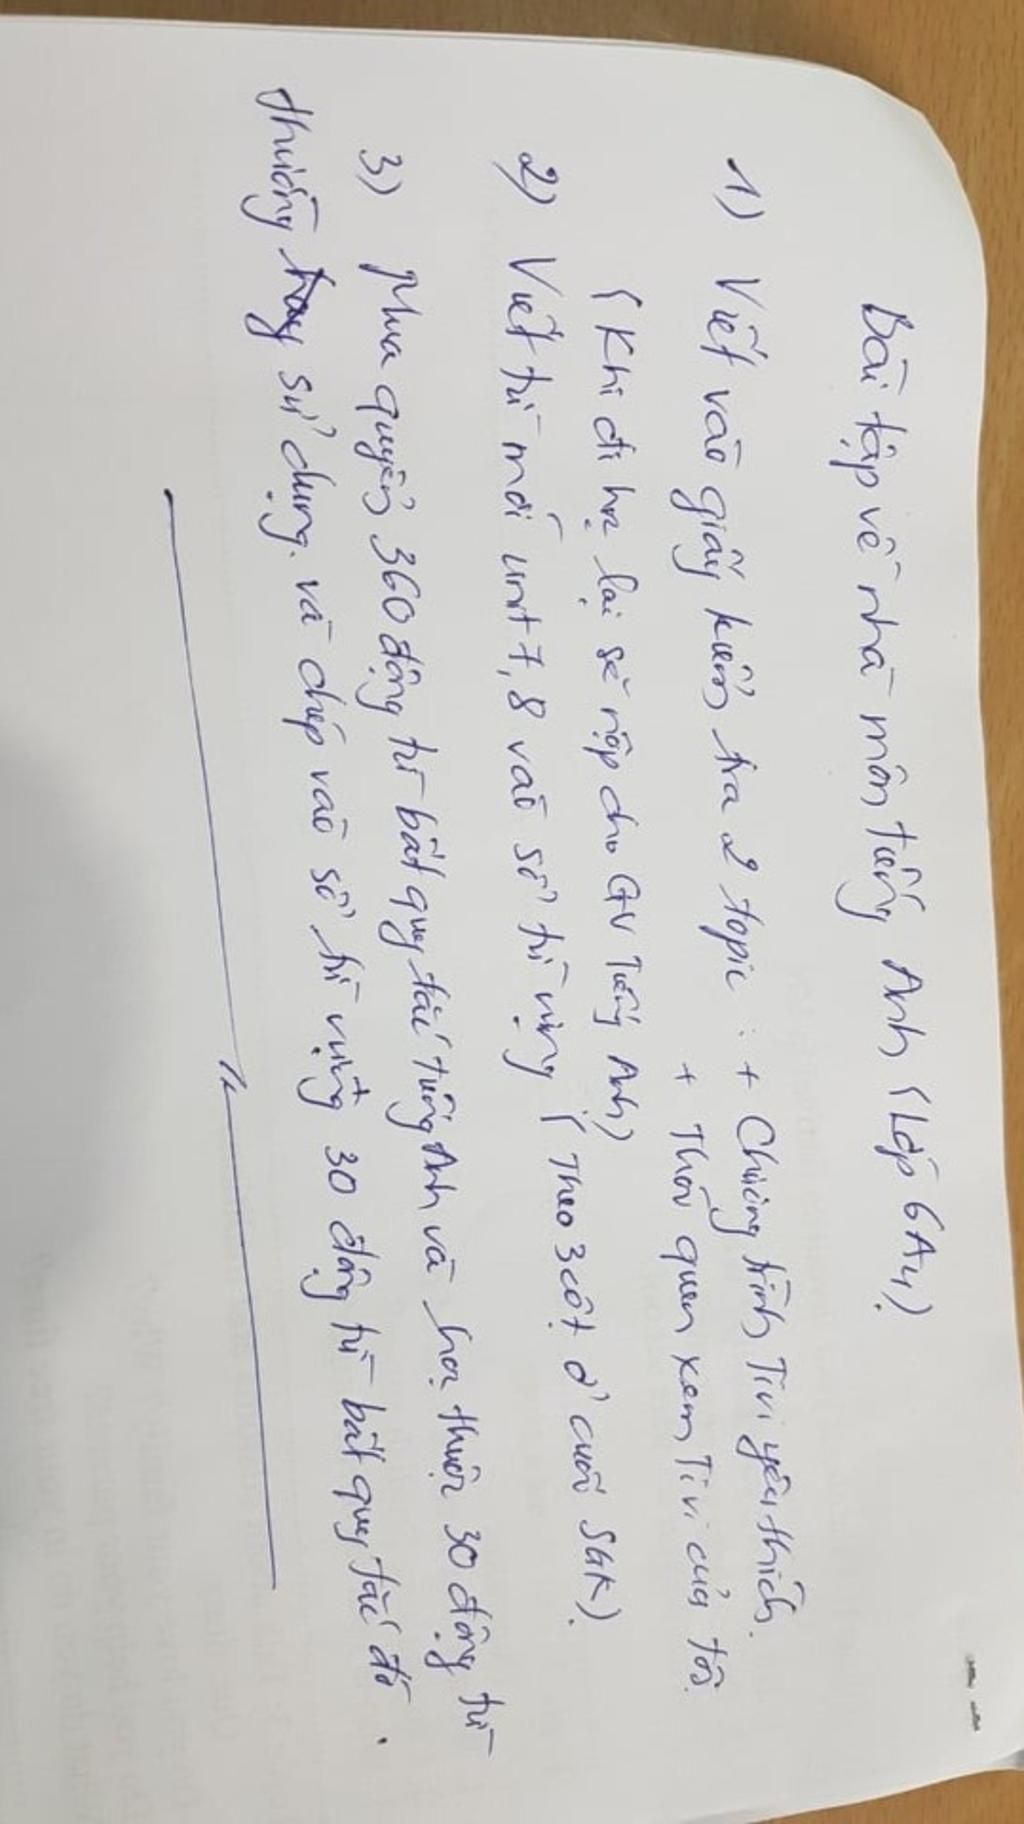 Bài tập về nhà môn tiếng Anh (Lớp 6A4)
1) Viết vào giấy kiểm tra 2 topic : + Chương trình Ti vi yêu thích.
+ Thói quen xem Ti vi của tôi.
(Khi đi học lại sẽ nộp cho GV Tiếng Anh)
2) Viết từ mới unit 7, 8 vào sổ từ vựng (Theo 3 cột ở cuối SGK).
3) Mua quyển 360 động từ bất quy tắc tiếng Anh và học thuộc 30 động từ
thường hay sử dụng. và chép vào sổ từ vựng 30 động từ bất quy tắc đó.